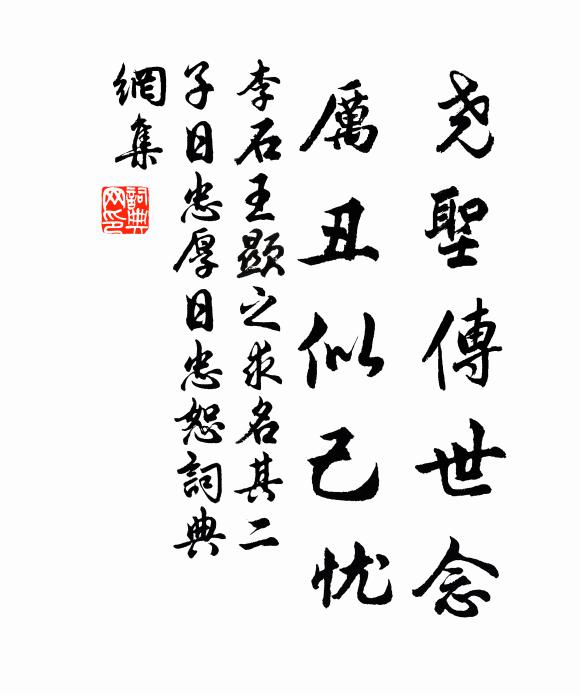 尧聖傳世念
厲丑似己忧
李石王顯之求名其二
子日忠厚日忠恕詞典
網集
詞典
网印